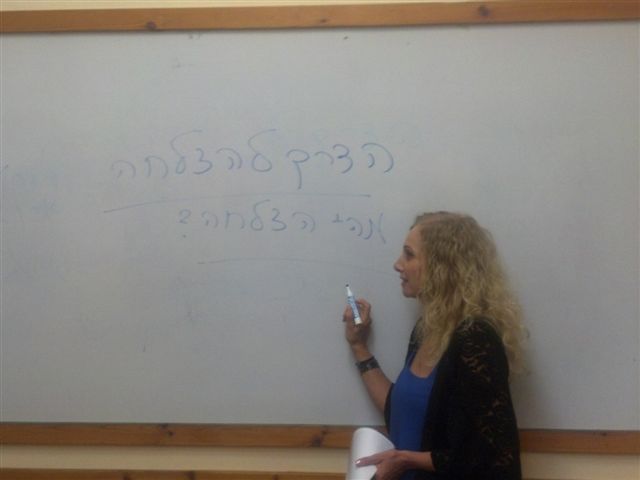 הדרך להצלחה
מהי הצלחה?